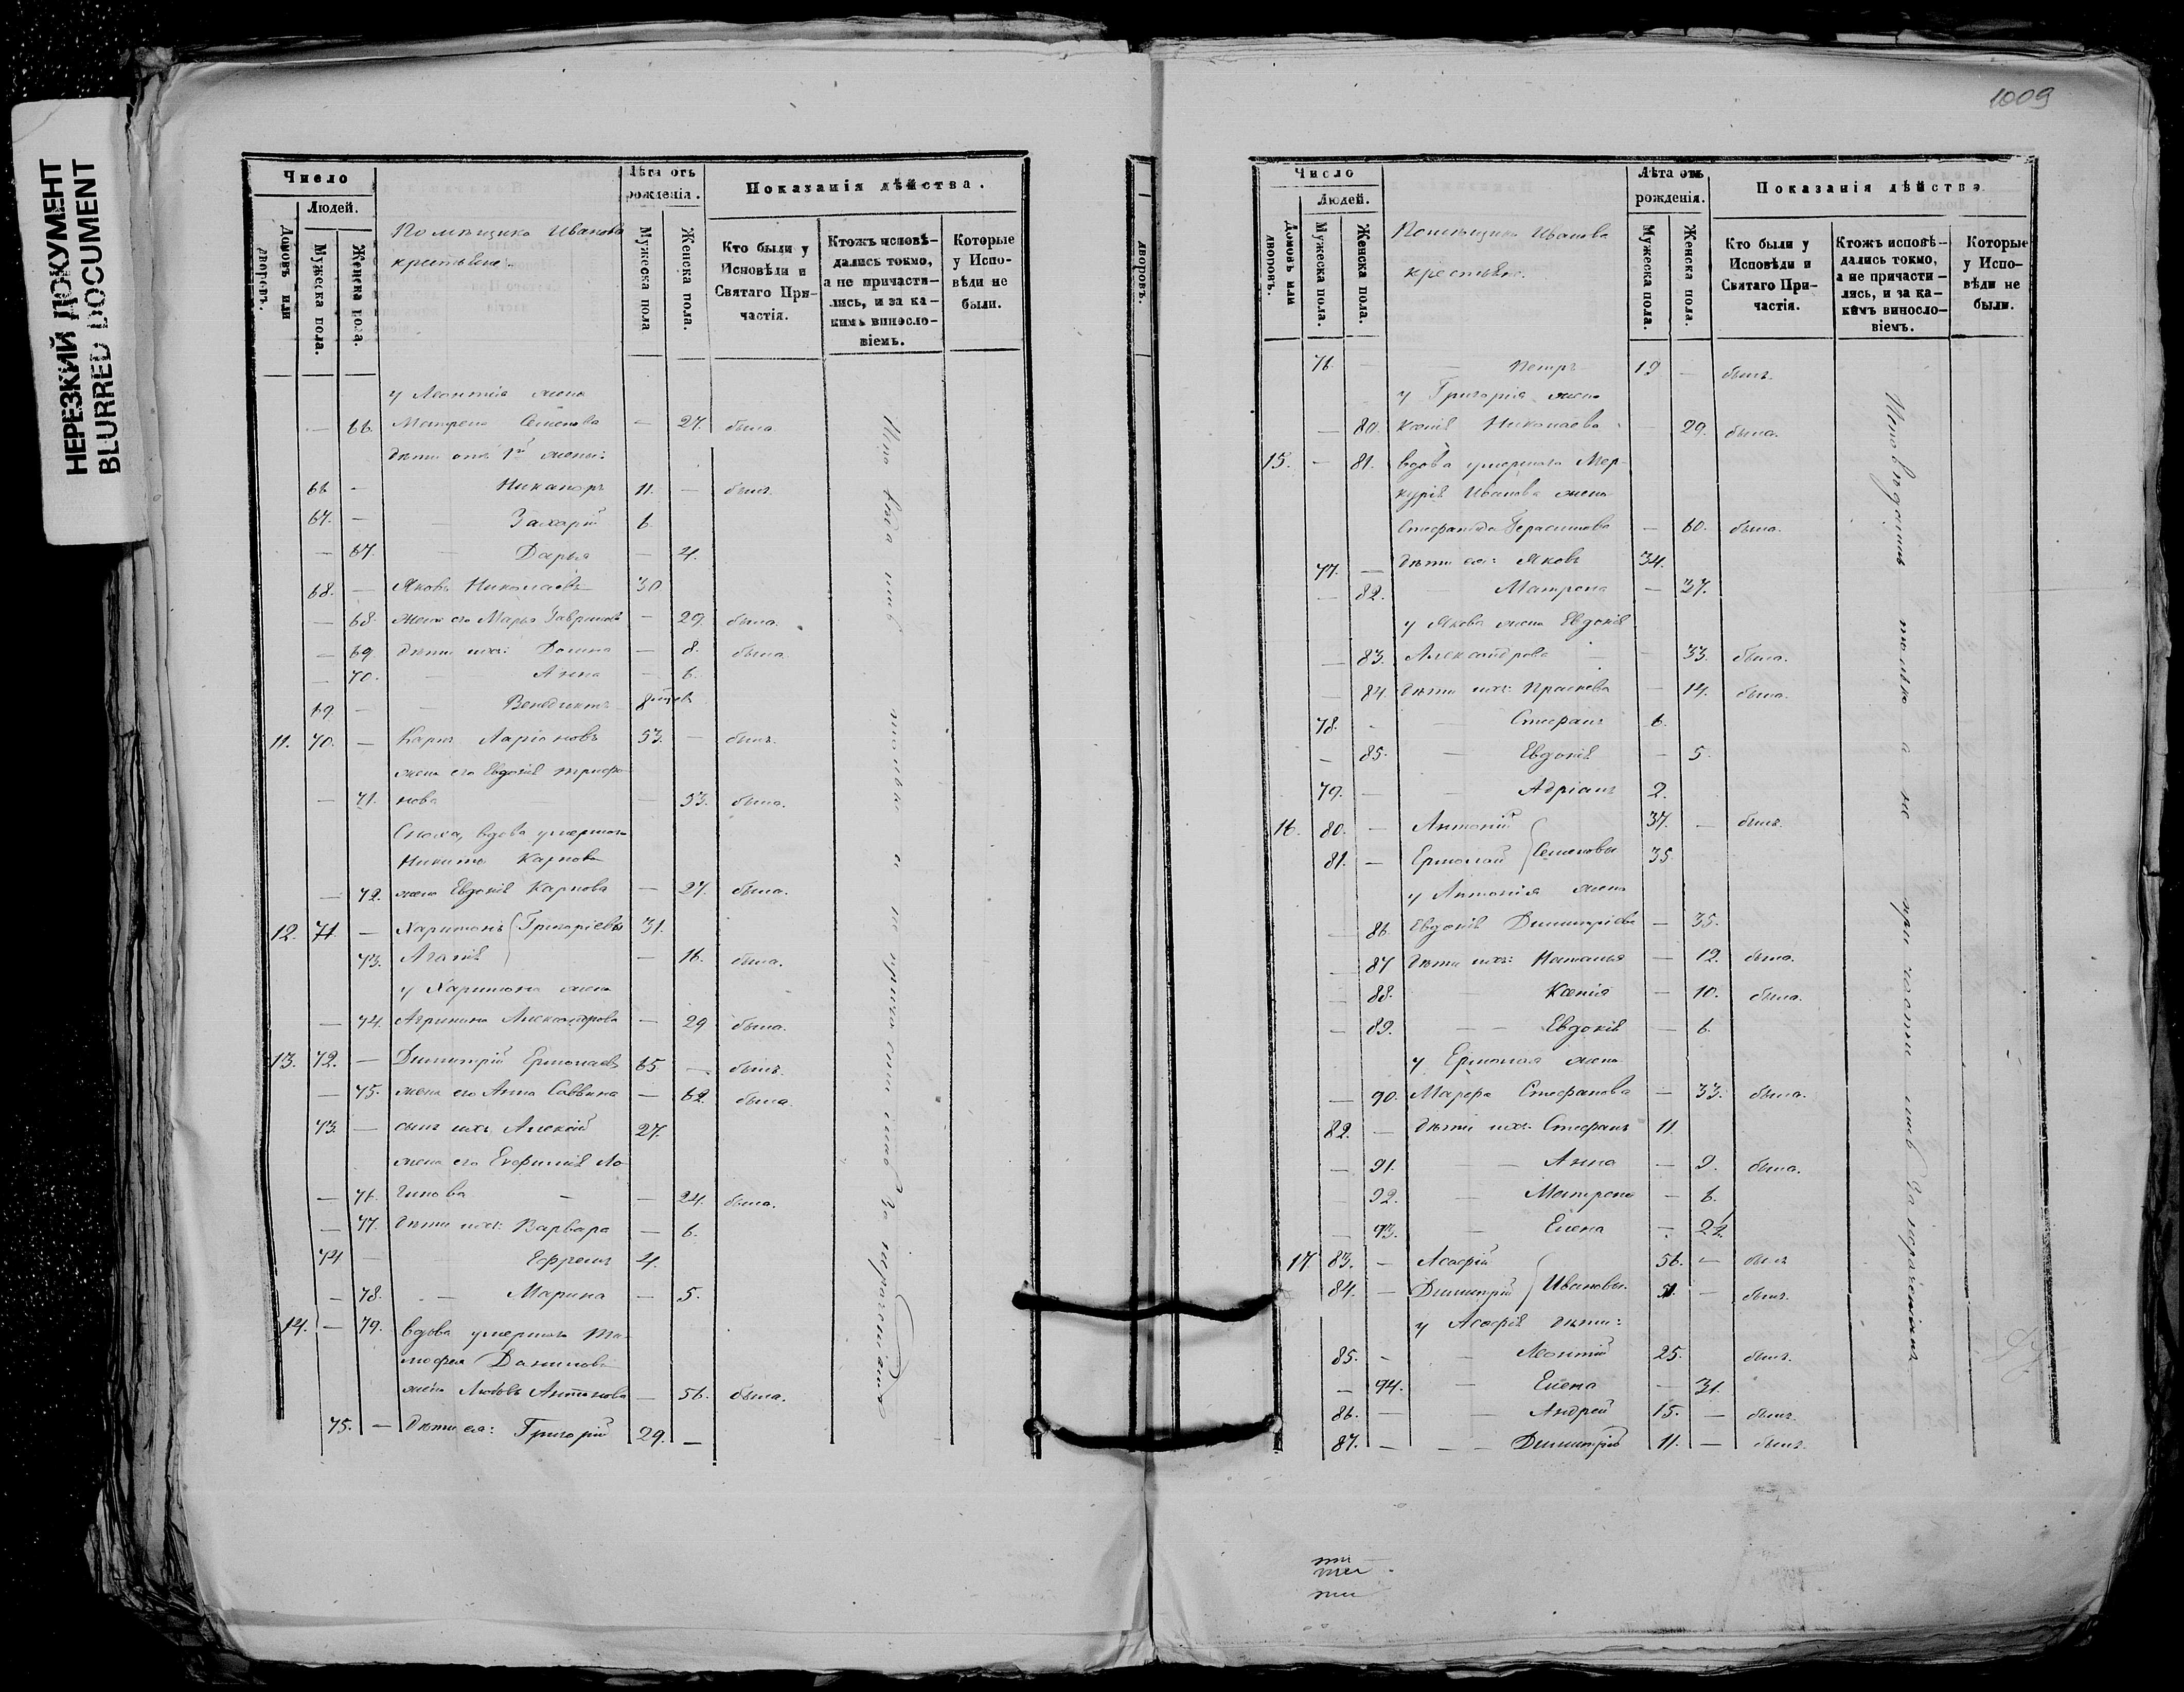 НЕРЕЗКИЙ ДОКУМЕНТ
BLURRED DOCUMENT
Число
Людей.
Домовъ или дворовъ.
Мужеска пола.
Женска пола.
Помѣщика Иванова
крестьяне.
Лѣта отъ рожденія.
Мужеска пола
Женска пола.
Показанія дѣйства.
Кто были у Исповѣди и Святаго Причастія.
Ктожъ исповѣдались токмо, а не причастились, и за какимъ винословіемъ.
Которые у Исповѣди не были.
у Леонтія жена
— 66. Матрена Семенова — 27. была.
дѣти отъ 1й жены:
66 — Никаноръ 11. — былъ.
67. — — Захарій 6.
— 67. — Дарья — 4.
68. — Яковъ Николаевъ 30
— 68. жена его Марья Гаврилова — 29. была.
— 69. дѣти ихъ: Домна — 8. была
— 70. — Анна — 6.
69 — — Венедиктъ
11. 70. — Карпъ Ларіоновъ 53. — былъ.
жена его Евдокія Трифо-
— 71. нова — 53. была.
Сноха, вдова умершаго
Никиты Карпова
— 72. жена Евдокія Карпова — 27. была.
12. 71 — Харитонъ Григоріевы 31.
73. Агапія — 16. была.
у Харитона жена
— 74. Агрипина Александрова — 29 была.
13. 72. — Димитрій Ермолаевъ 65 — былъ.
— 75. жена его Анна Саввина — 62. была.
73. — сынъ ихъ Алексій 27.
жена его Евфимія Ло-
— 76. гинова — — 24. была.
— 77. дѣти ихъ: Варвара — 6.
74 — Ефремъ 4.
— 78. — Марина — 5.
14. — 79. вдова умершаго Ти-
мофея Данилова
жена Любовь Антонова — 56. была.
75. — дѣти ея: Григорій 29. —
1009
дворовъ.
Число
Людей.
Домовъ или дворовъ.
Мужеска пола.
Женска пола.
Помѣщика Иванова
крестьяне.
Лѣта отъ рожденія.
Мужеска пола.
Женска пола.
Показанія дѣйства
Кто были у Исповѣди и Святаго Причастія.
Ктожъ исповѣдались токмо, а не причастились, и за какимъ винословіемъ.
Которые у Исповѣди не были.
76. — — Петръ 19 — былъ.
у Григорія жена
— 80. Ксенія Николаева — 29. была.
15. — 81. вдова умершаго Мер-
курія Иванова жена
Стефанида Герасимова — 60. была.
77. — дѣти ея: Яковъ 34.
— 82. — Матрена — 37.
у Якова жена Евдокія
— 83. Александрова — — 33. была.
— 84. дѣти ихъ: Прасковья — 14. была.
78. — — Стефанъ 6.
— 85. — Евдокія — 5.
79. — — Адріанъ 2.
16. 80. — Антоній 37. — былъ.
81. — Ермолай Семеновы 35
у Антонія жена
— 86. Евдокія Димитріева — 35.
— 87 дѣти ихъ: Наталья — 12. была.
— 88. — Ксенія — 10. была.
— 89. — — Евдокія — 6.
у Ермолая жена
— 90. Марфа Стефанова — 33. была.
82. — дѣти ихъ: Стефанъ 11
— 91. — — Анна — 9. была.
— 92. — Матрена — 6.
— 93. — Елена —
17 83. — Асафій 56. — былъ
84. — Димитрій Ивановы. — былъ.
у Асафія дѣти:
85. — — Леонтій 25. былъ.
— 94. — Елена —
86. — — Андрей 15. — былъ.
87. — — — Димитрій 11. — былъ.